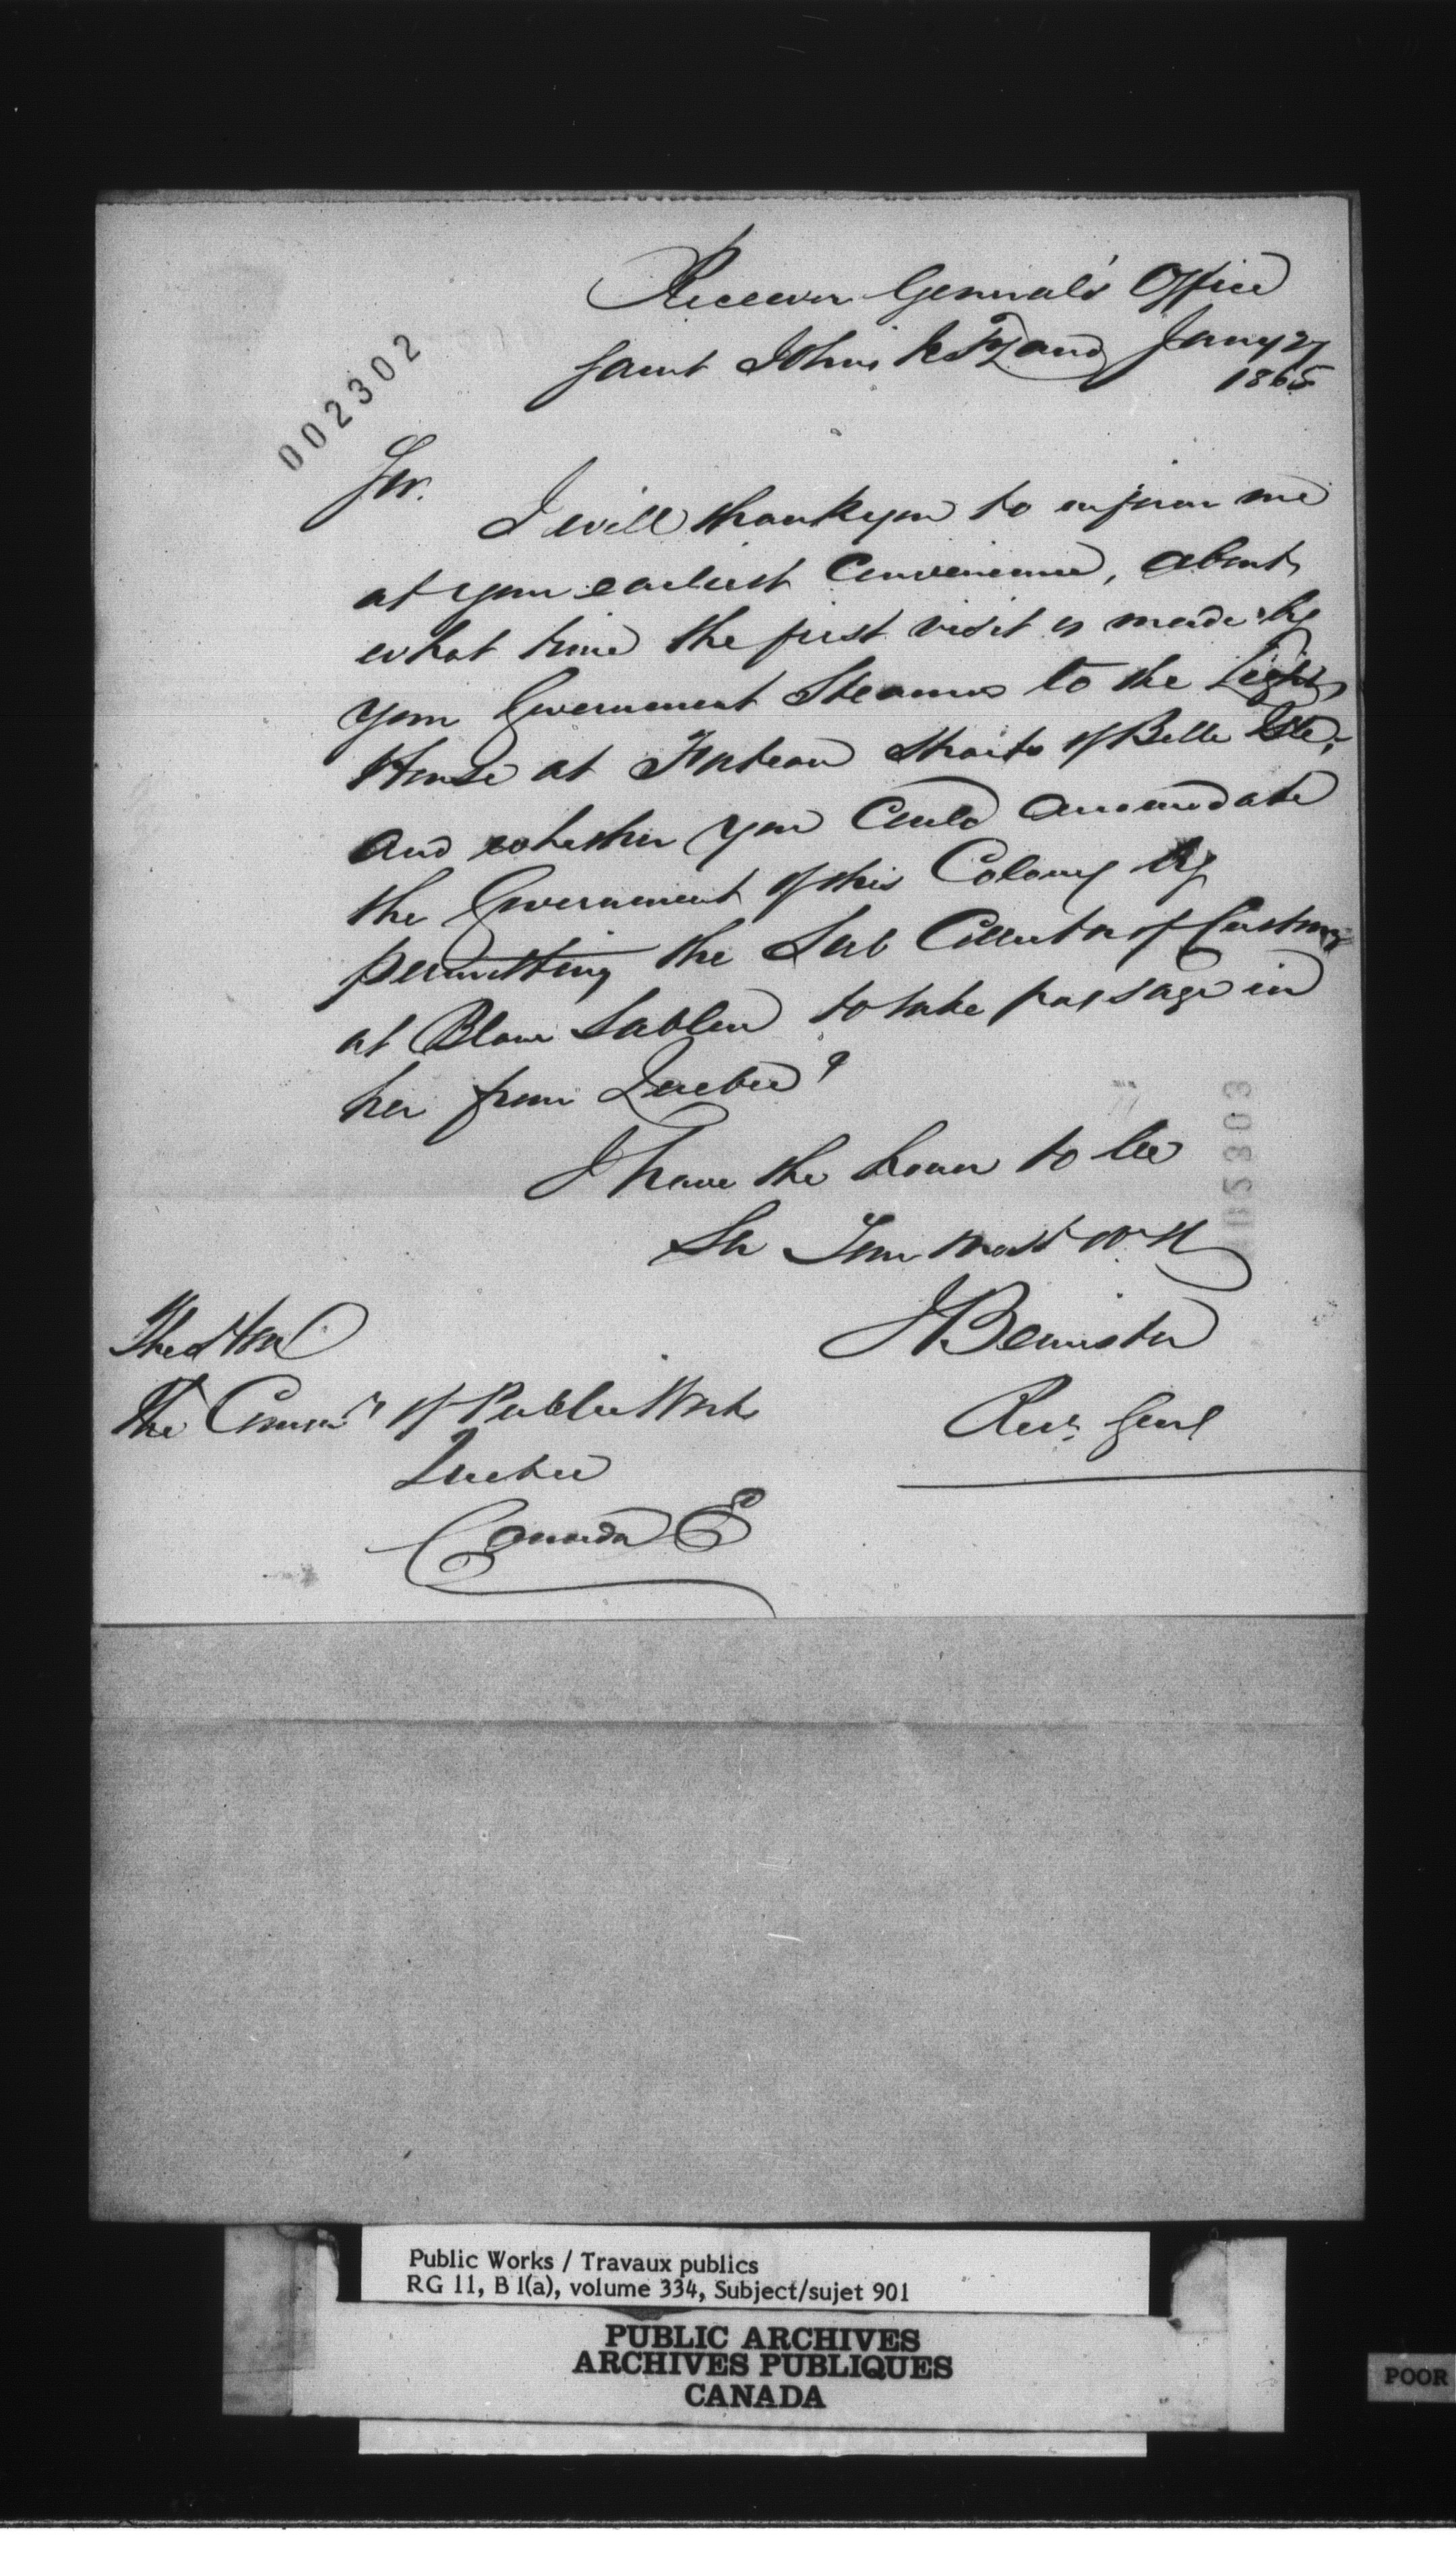 002302
Receiver General's Office
Saint Johns NFLand Jany 27
1865
Sir.
I will thank you to inform me
at your earliest Convenience, about
what time the first visit is made by
your Government Steamer to the Light
House at Forteau Straits of Belle Isle,
and whether you Could accomodate
the Government of this Colony by
permitting the Sub Collector of Customs
at Blanc Sablon to take passage in
her from Quebec?
I have the honor to be
Sir Your most
J Bemister
Recr. Genl
The Hon
The Commr of Public Works
Quebec
Canada E
002303
Public Works / Travaux publics
RG 11, B 1(a), volume 334, Subject/sujet 901
PUBLIC ARCHIVES
ARCHIVES PUBLIQUES
CANADA
POOR